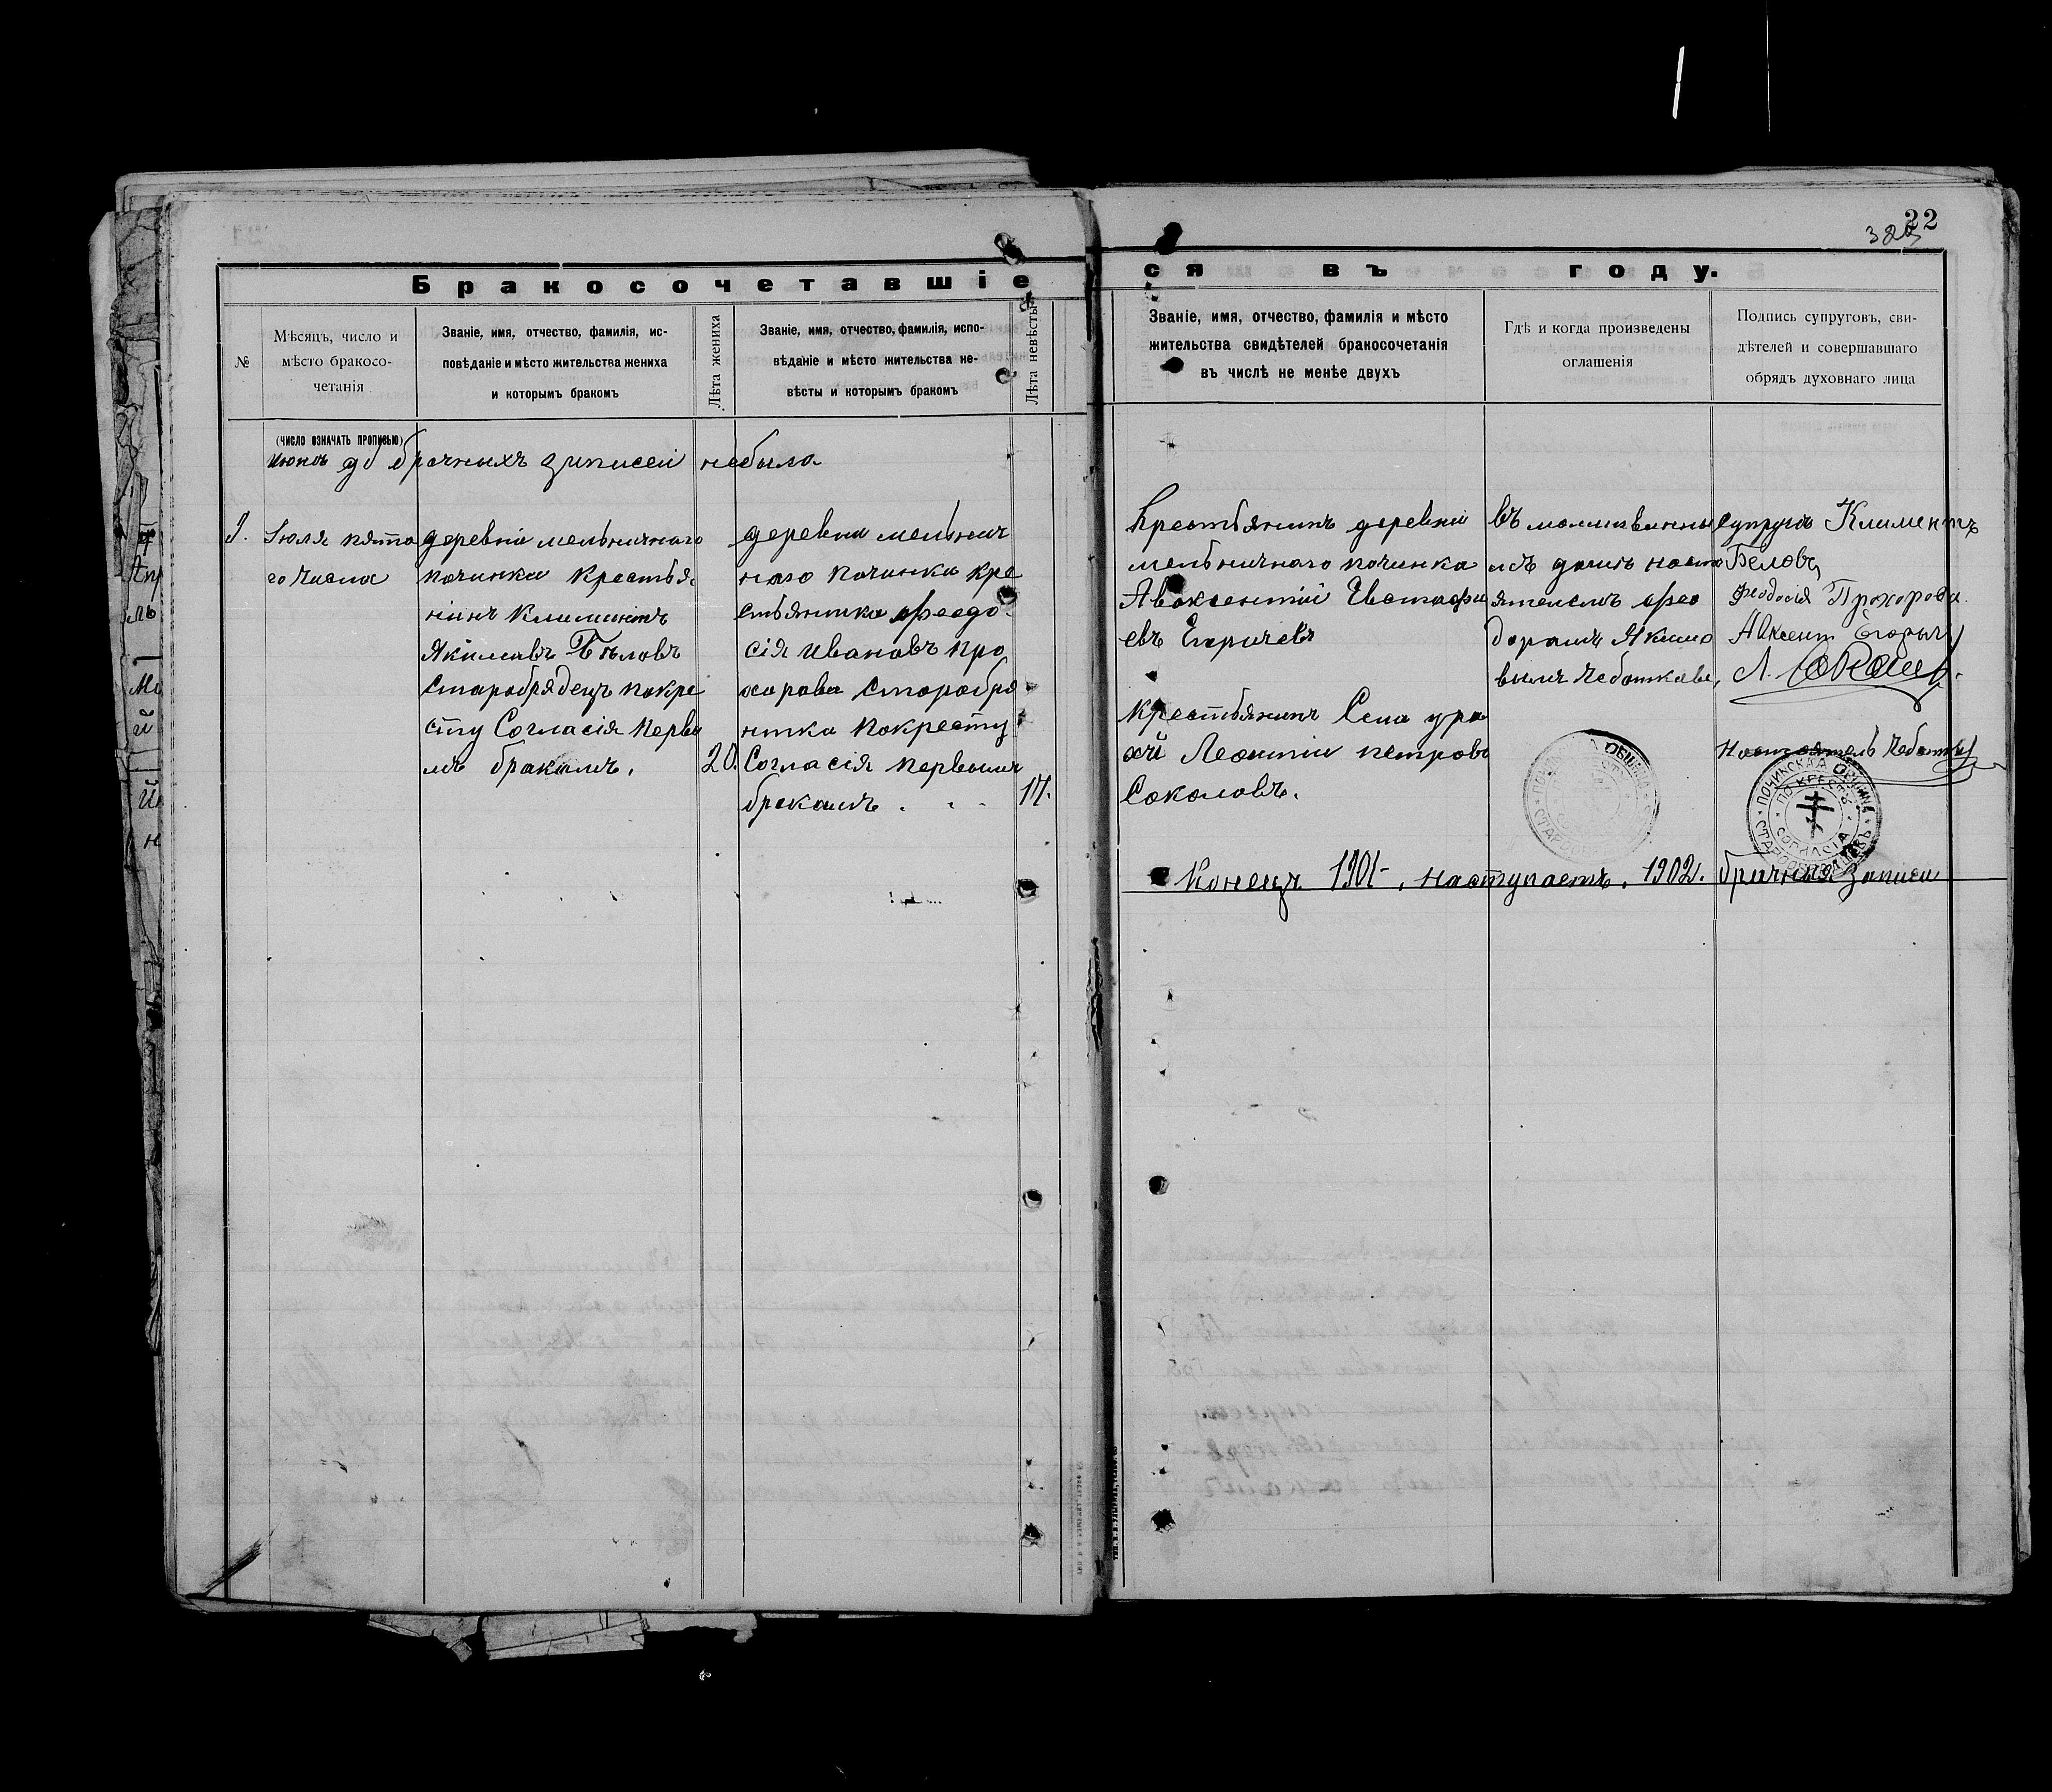 22
Бракосочетавшіеся въ году.
№
Мѣсяцъ, число и
мѣсто бракосо-
четанія
Званіе, имя, отчество, фамилія, ис-
повѣданіе и мѣсто жительства жениха
и которымъ бракомъ
Лѣта жениха
Званіе, имя, отчество, фамилія, испо-
вѣданіе и мѣсто жительства не-
вѣсты и которымъ бракомъ
Лѣта невѣсты
Званіе, имя, отчество, фамилія и мѣсто
жительства свидѣтелей бракосочетанія
въ числѣ не менѣе двухъ
Гдѣ и когда произведены
оглашенія
Подпись супруговъ, сви-
дѣтелей и совершавшаго
обрядъ духовнаго лица
(число означать прописью)
брачныхъ записей небыло
Іюля пято
го числа
деревни мельничнаго
починка крестья
нинъ Климинтъ
Якимавъ Бѣловъ
Старобрядецъ покре
сту Согласія Первы
мъ бракамъ.
20.
деревни мельнич
наго починка кре
стьянника феодо
сія Ивановъ про
харова Старобря
нтка Покресту
Согласія первымъ
бракамъ.
17.
Крестьянинъ деревни
мельничнаго починка
Авоксентій Евстафи
евъ
крестьянинъ Села ура
хчи Леонтіи петровъ
Соколовъ.
въ
мъ домъ насто
ятелемъ фео
дорамъ Якимо
вымъ Чеботкавы,
Супругъ Климентъ
Беловъ
Феодосія Прохорова.
Авксент
Настоятель Чеботк
ПОЧИНСКАЯ ОБЩИНА
ПО КРЕСТУ
СОГЛАСІЯ
СТАРООБРЯДЦЕВЪ
Конецъ 1901, наступаетъ, 1902. брачныя записи